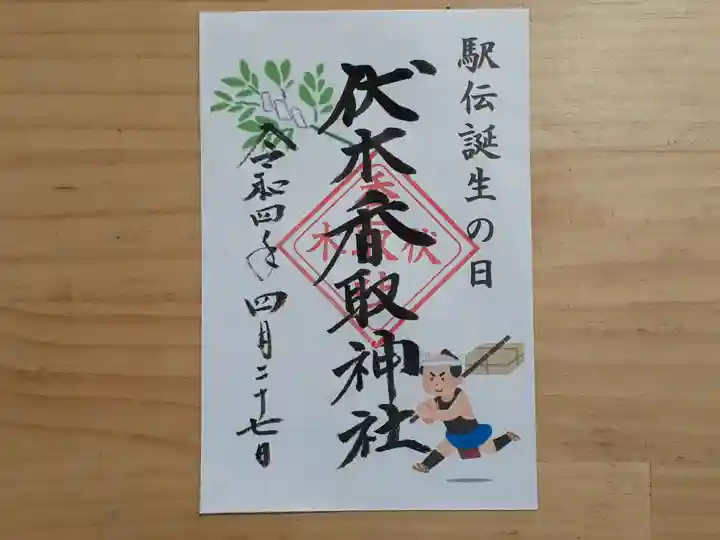 駅伝誕生の日
伏木香取神社
令和四年四月二十七日
伏木